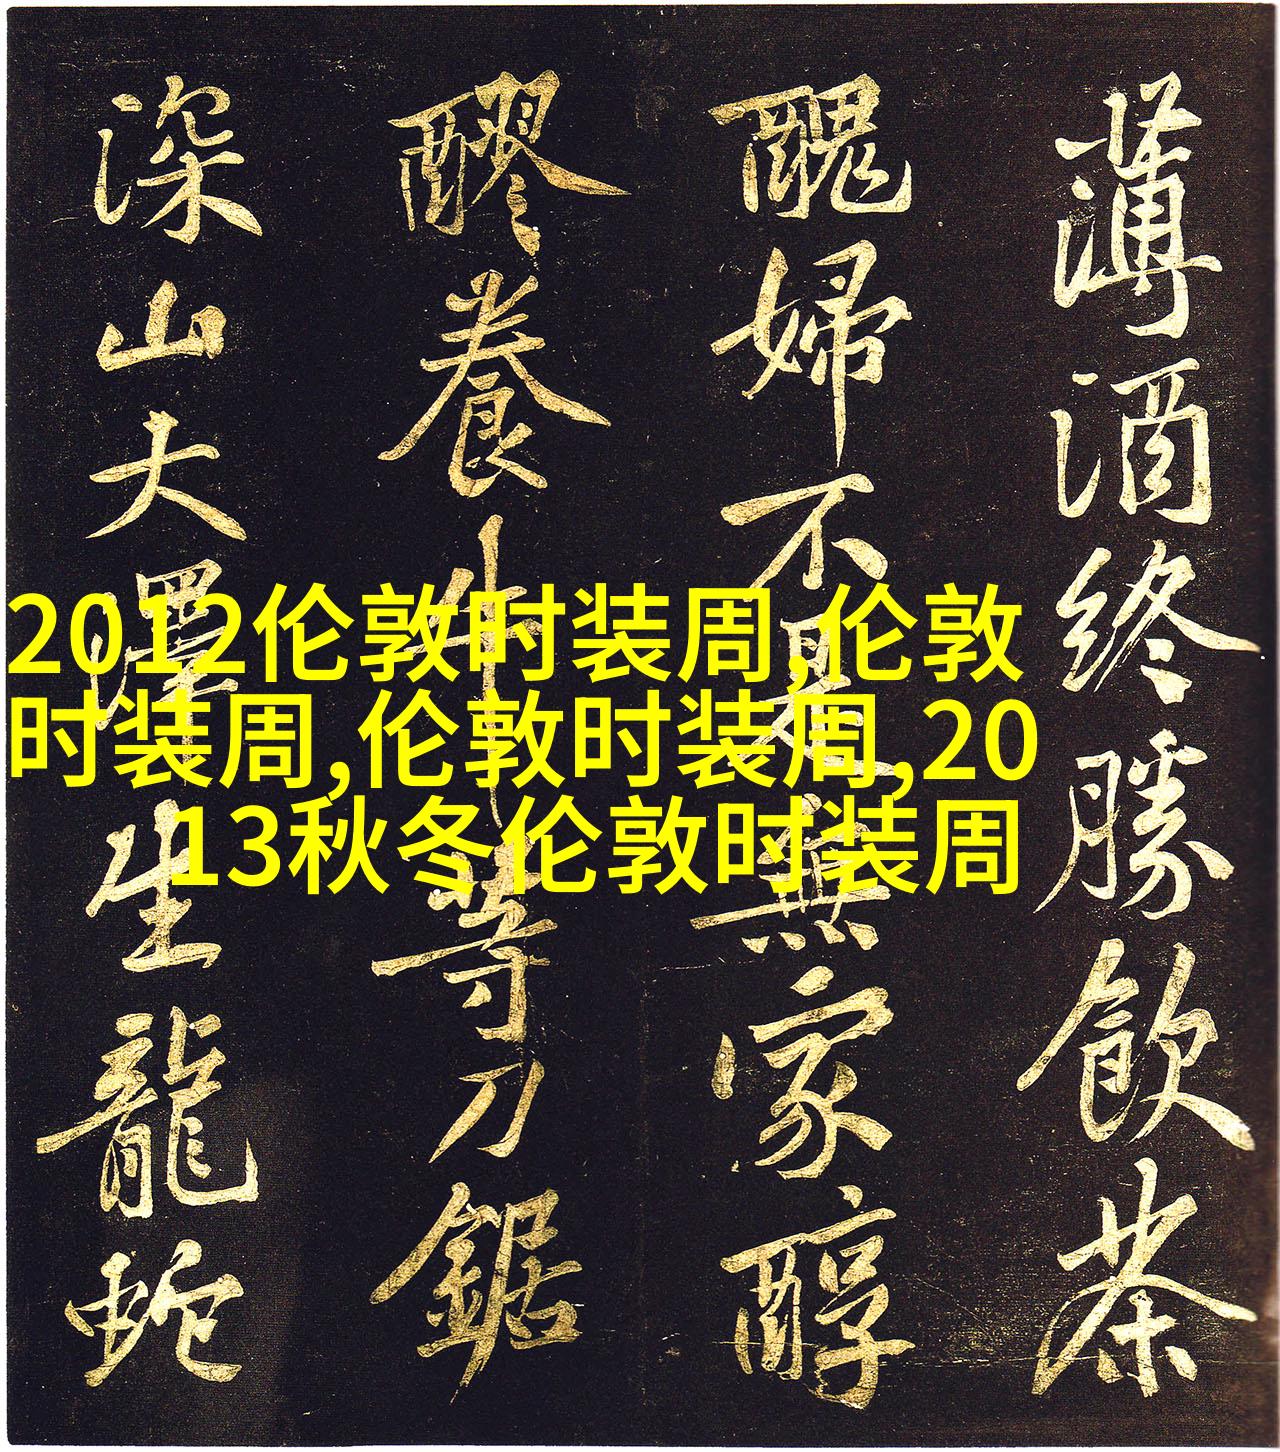 薄酒終勝飲茶
醜婦不是無家醇
醪養牛等刀鋸
深山大澤生龍蛇
2012伦敦时装周,伦敦
时装周,伦敦时装周,20
13秋冬伦敦时装周